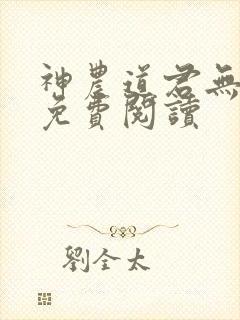 神農道君無
免費閱讀
劉全太